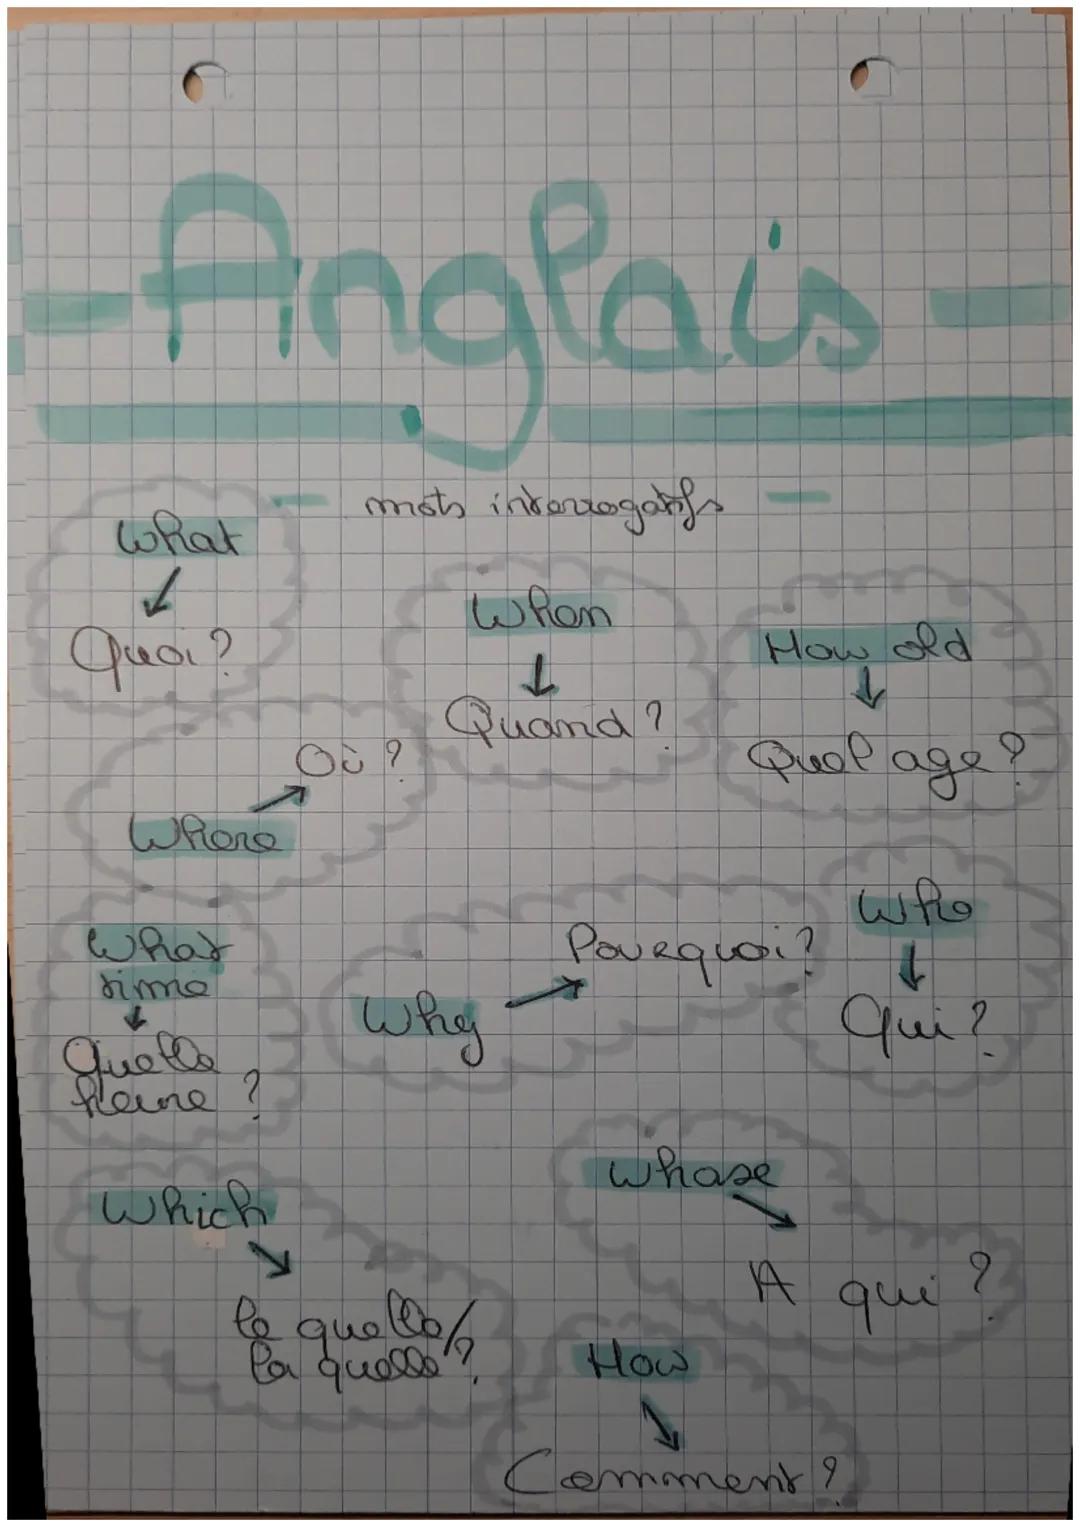 Anglais
mots interrogatifs
What
Quoi ?
When
Quand ?
How old
Quel age ?
Où ?
Where
What
time
Quelle
heure ?
Why
Pourquoi ?
Who
Qui ?
Which
le quelle /
la quelle ?
Whose
A qui ?
How
Comment ?